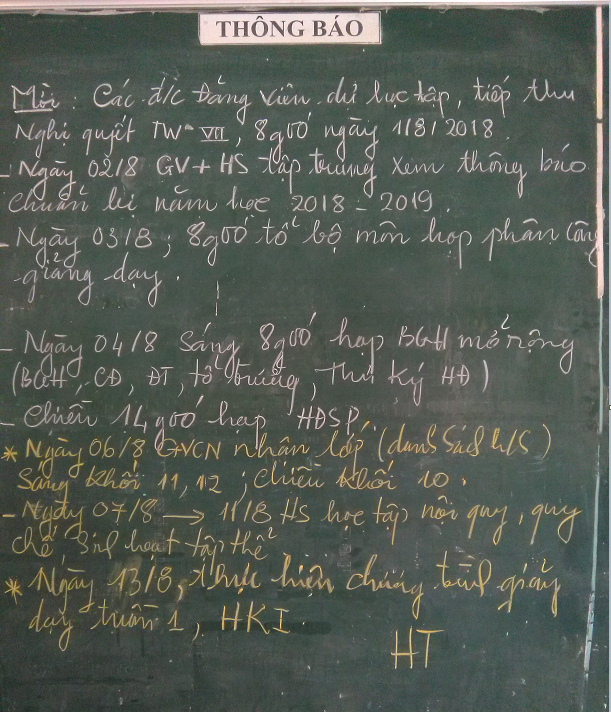 THÔNG BÁO
Mời: Các đ/c Đảng viên dự học tập, tiếp thu
Nghị quyết TW VII, 8g00' ngày 1/8/2018.
- Ngày 02/8 GV + HS tập trung xem thông báo
chuẩn bị năm học 2018 - 2019.
- Ngày 03/8; 8g00' tổ bộ môn họp phân công
giảng dạy.
- Ngày 04/8 Sáng 8g00' họp BGH mở rộng
(BGH, CĐ, ĐT, tổ trưởng, Thư ký HĐ)
- Chiều 14g00' họp HĐSP.
* Ngày 06/8 GVCN nhận lớp (danh sách h/s)
Sáng khối 11, 12; chiều khối 10.
- Ngày 07/8 → 11/8 HS học tập nội quy, quy
chế sinh hoạt tập thể
* Ngày 13/8, thực hiện chương trình giảng
dạy tuần 1, HKI.
HT